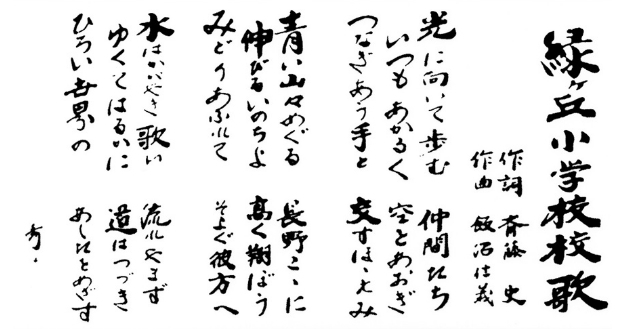 緑ヶ丘小学校校歌
作詞 斉藤 史
作曲 飯沼信義
光に向いて歩む 仲間たち
いつもあかるく 空をあおぎ
つなぎあう手と 交すほゝえみ
青い山々めぐる 長野こゝに
伸びるいのちよ 高く翔ぼう
みどりあふれて そよぐ彼方へ
水はかがやき歌い 流れやまず
ゆくてはるかに 道はつづき
ひろい世界の あしたをめざす